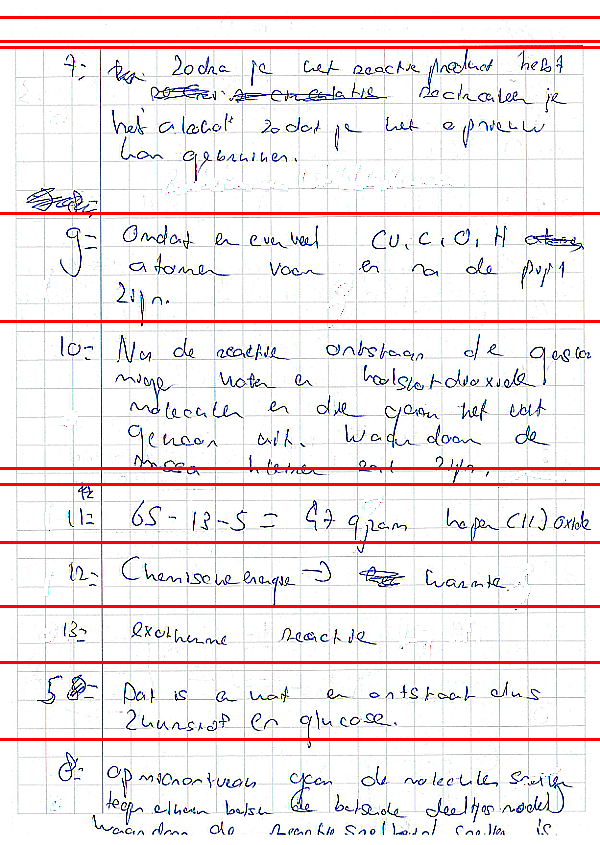 7: Zodra je het reactie product hebt
recirculeer je
het alcohol zodat je het opnieuw
kan gebruiken.
9= Omdat er evenveel Cu, C, O, H
atomen voor en na de pijl
zijn.
10= Na de reactie ontstaan de gasvor
mige water en koolstofdioxide
moleculen en die gaan het
uit. Waardoor de
massa kleiner zal zijn.
11= 65 - 13 - 5 = 47 gram koper (II) oxide
12= Chemische energie → warmte
13= exotherme reactie
5 = Dat is en ontstaat dus
Zuurstof en glucose.
8= gaan de moleculen sneller
tegen elkaar botsen (de botsende deeltjes model)
waardoor de reactie snelheid sneller is